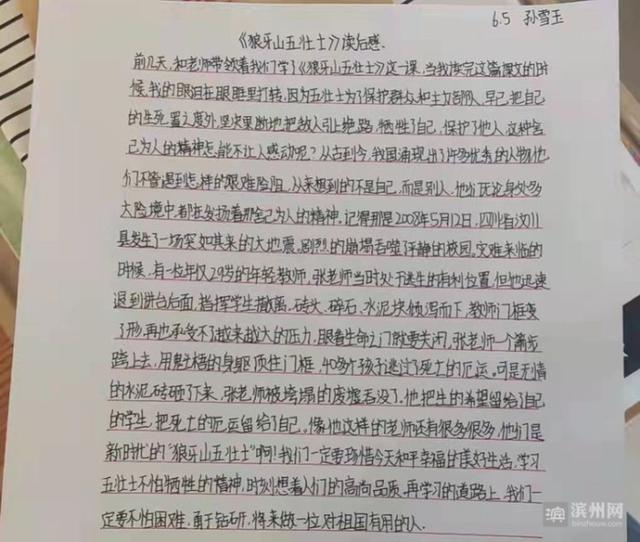 6.5 孙雪玉
《狼牙山五壮士》读后感.
前几天,和老师带领着我们学了《狼牙山五壮士》这一课,当我读完这篇课文的时
候,我的眼泪在眼眶里打转,因为五壮士为了保护群众和主力部队,早已把自己
的生死置之度外,坚决果断地把敌人引上绝路,牺牲了自己,保护了他人,这种舍
己为人的精神怎能不让人感动呢?从古到今,我国涌现出了许多优秀的人物,他
们不管遇到怎样的艰难险阻,从来想到的不是自己,而是别人,他们无论身处多
大险境中,都在发扬着那舍己为人的精神,记得那是2008年5月12日,四川省汶川
县发生了一场突如其来的大地震,剧烈的崩塌吞噬了静静的校园,灾难来临的
时候,有一位年仅29岁的年轻教师,张老师当时处于逃生的有利位置,但他迅速
退到讲台后面,指挥学生撤离,砖头、碎石、水泥块倾泻而下,教师门框变
了形,再也承受不了越来越大的压力,眼看生命之门就要关闭,张老师一个箭步
跨上去,用魁梧的身躯顶住门框,40多个孩子逃过了死亡的厄运,可是无情
的水泥砖砸了下来,张老师被垮塌的废墟吞没了,他把生的希望留给了自己
的学生,把死亡的厄运留给了自己。像他这样的老师还有很多很多,他们是
新时代的“狼牙山五壮士”啊!我们一定要珍惜今天和平幸福的美好生活,学习
五壮士不怕牺牲的精神,时刻想着人们的高尚品质,再学习的道路上,我们一
定要不怕困难,勇于钻研,将来做一位对祖国有用的人.
滨州网
binzhouw.com